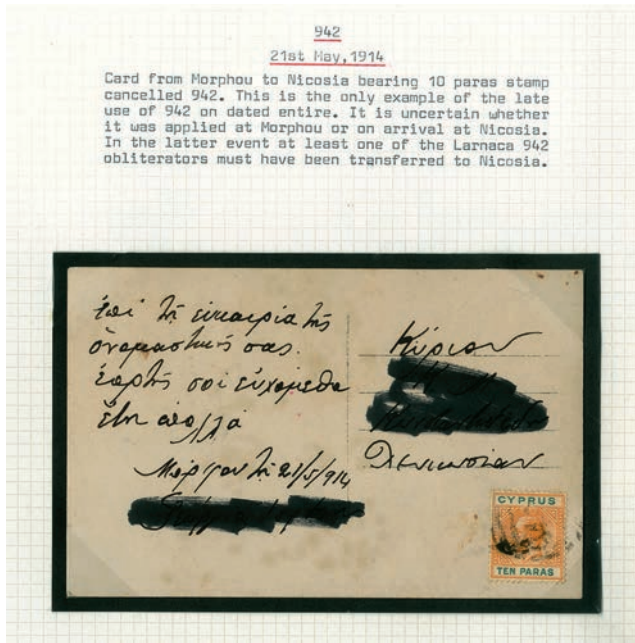 942
21st May,1914
Card from Morphou to Nicosia bearing 10 paras stamp
cancelled 942. This is the only example of the late
use of 942 on dated entire. It is uncertain whether
it was applied at Morphou or on arrival at Nicosia.
In the latter event at least one of the Larnaca 942
obliterators must have been transferred to Nicosia.
ἐπὶ τῇ εὐκαιρίᾳ τῆς
ὀνομαστικῆς σας
ἑορτῆς σοι εὐχόμεθα
ἔτη πολλά
Μόρφου τῇ 21/5/914
Κύριον
Λευκωσίαν
CYPRUS
TEN PARAS